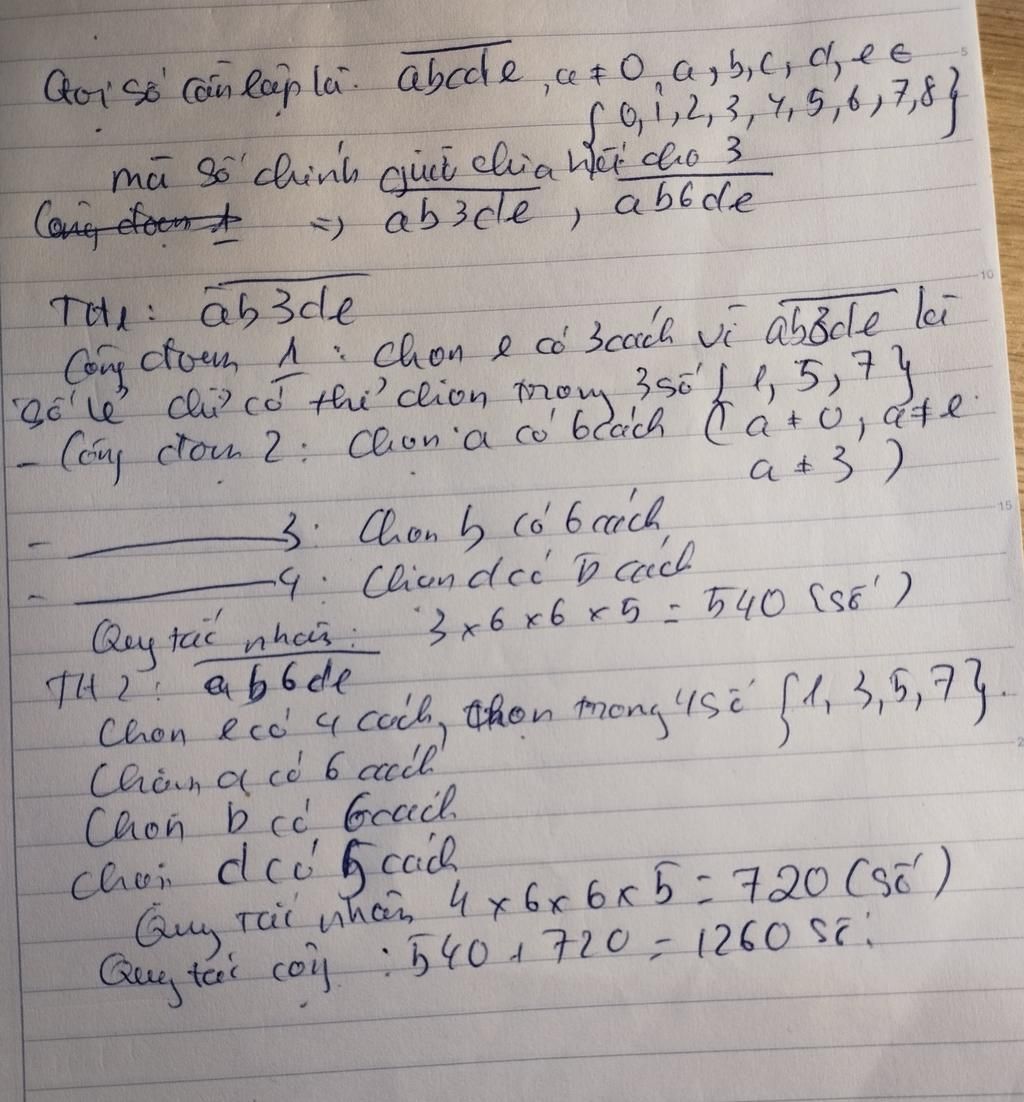 Gọi số cần lập là. abcde, a ≠ 0, a, b, c, d, e ∈
{0, 1, 2, 3, 4, 5, 6, 7, 8}
mà số chính giữa chia hết cho 3
Công đoạn 1 => ab3de, ab6de
TH1: ab3de
Công đoạn 1: chọn e có 3 cách vì ab3de là
số lẻ chỉ có thể chọn trong 3 số {1, 5, 7}
- Công đoạn 2: chọn a có 6 cách (a ≠ 0, a ≠ e
a ≠ 3)
- 3: Chọn b có 6 cách
- 4: Chọn d có 5 cách
Quy tắc nhân: 3 x 6 x 6 x 5 = 540 (số)
TH2: ab6de
Chọn e có 4 cách, chọn trong 4 số {1, 3, 5, 7}.
Chọn a có 6 cách
Chọn b có 6 cách
chọn d có 5 cách
Quy tắc nhân 4 x 6 x 6 x 5 = 720 (số)
Quy tắc cộng: 540 + 720 = 1260 số.